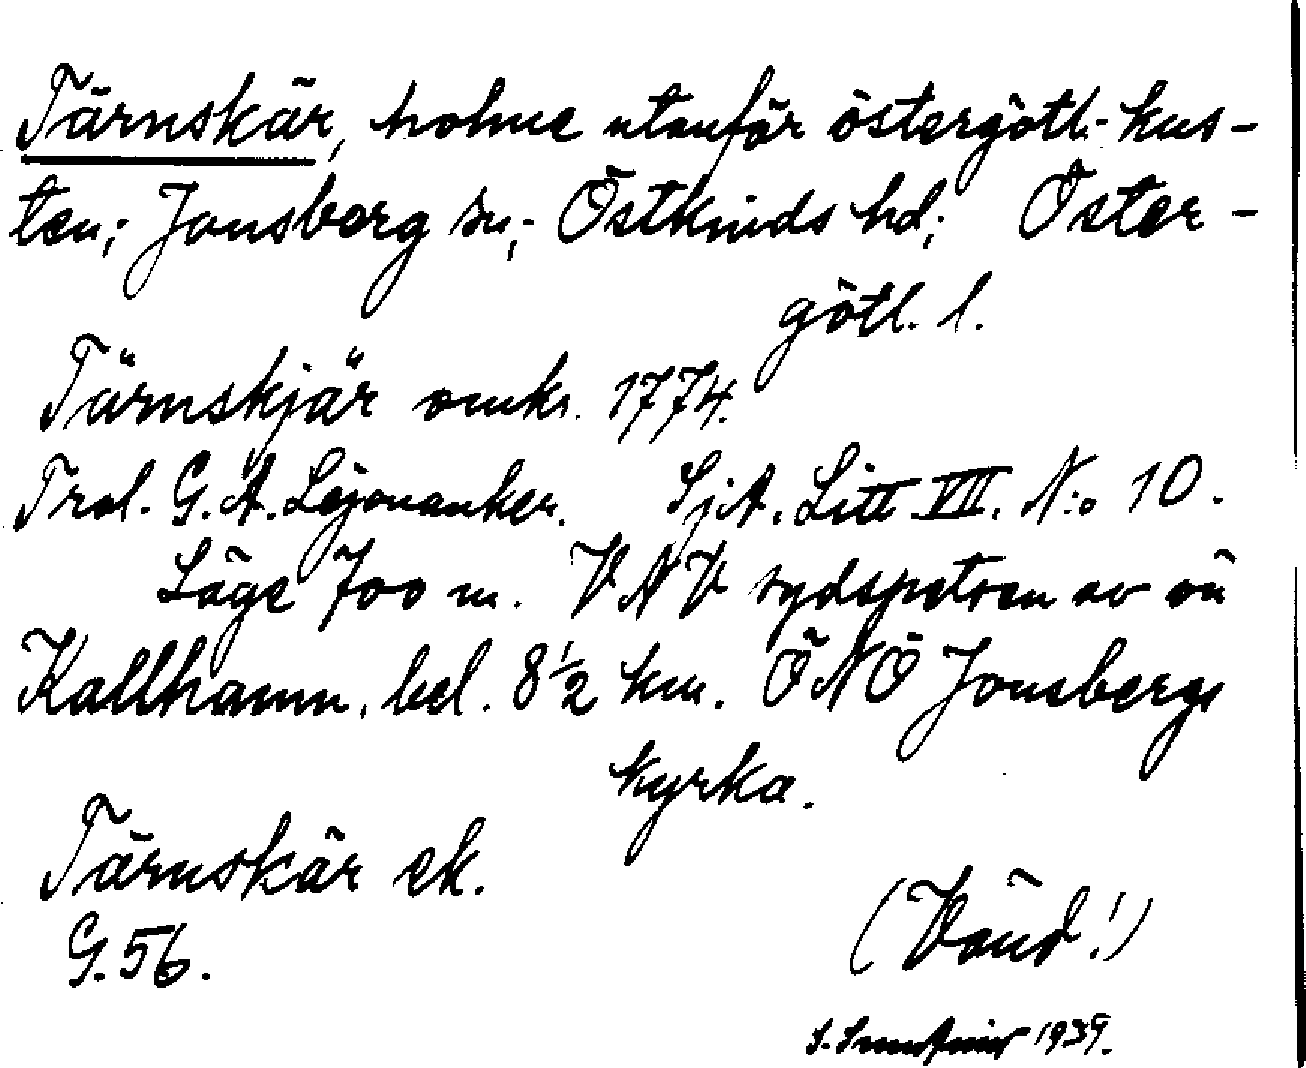 Tärnskär, holme utanför östergötl. kus-
ten; Jonsberg sn; Östkinds hd; Öster-
götl. l.
Tärnskjär omkr. 1774.
Trol. G. A. Lejonanker. SjA. Litt VII. N:o 10.
Läge 700 m. VNV sydspetsen av ön
Kallhamn, bel. 8½ km. ÖNÖ Jonsbergs
kyrka.
Tärnskär ek.
G. 56.
(Vänd!)
S. 1939.